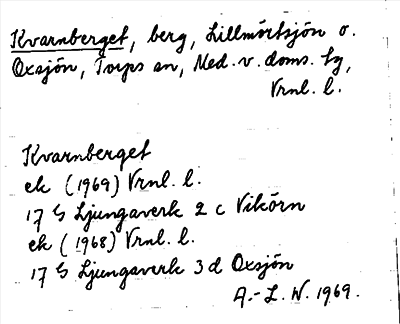 Kvarnberget, berg, Lillmörtsjön o.
Oxsjön, Torps sn, Med. v. doms. tg,
Vrnl. l.
Kvarnberget
ek (1969) Vrnl. l.
17 G Ljungaverk 2 c Vikörn
ek (1968) Vrnl. l.
17 G Ljungaverk 3 d Oxsjön
A.-L. W. 1969.